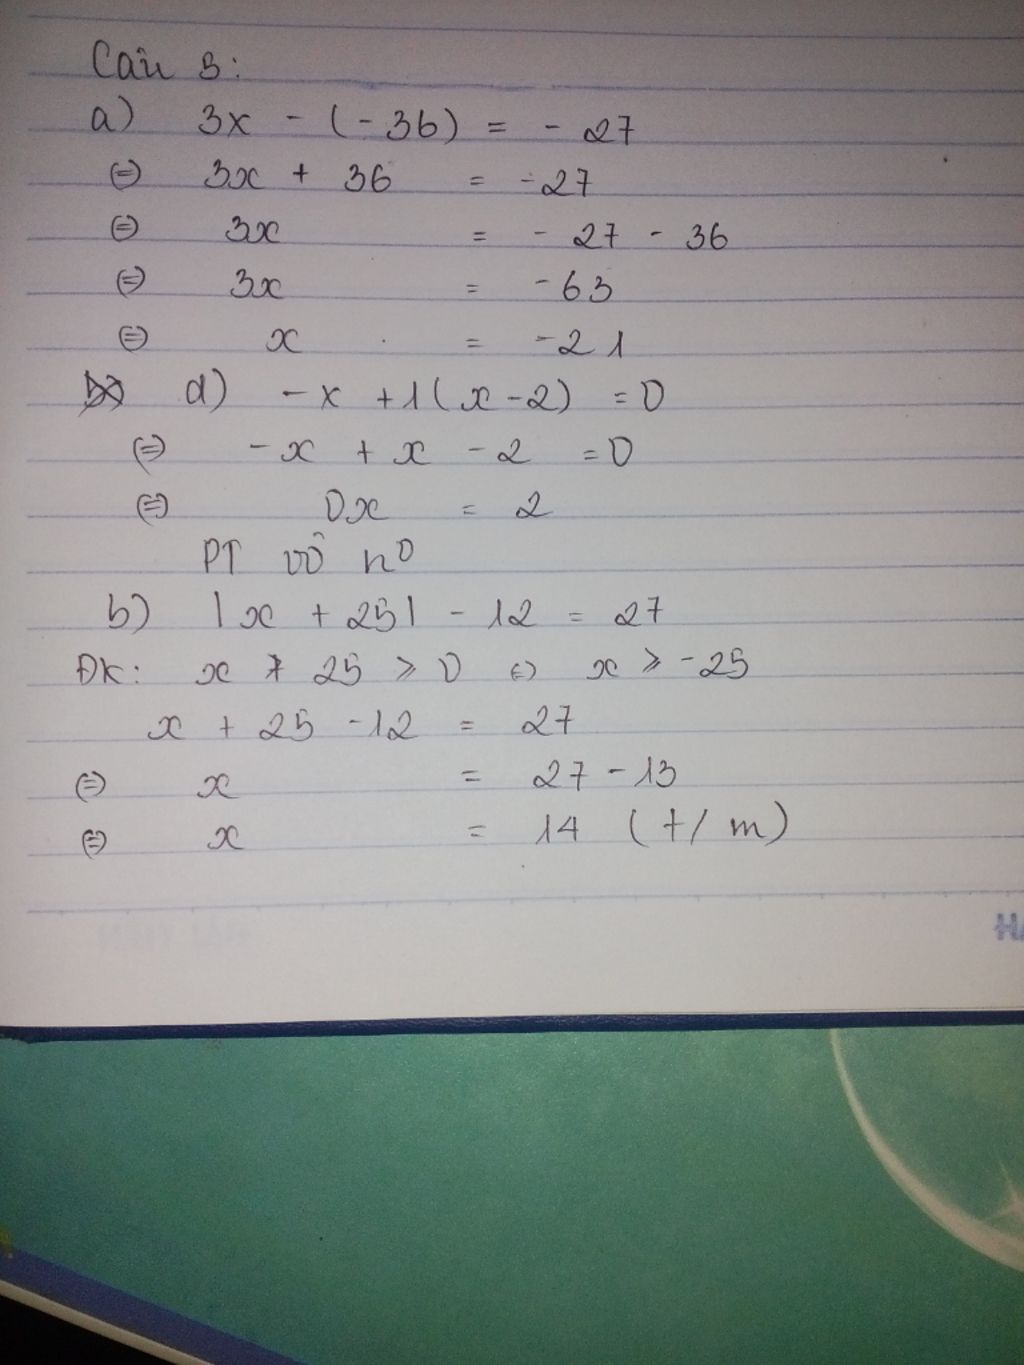 Câu 3:
a) 3x - (-36) = - 27
⇔ 3x + 36 = -27
⇔ 3x = - 27 - 36
⇔ 3x = -63
⇔ x = -21
d) -x + 1(x-2) = 0
⇔ -x + x - 2 = 0
⇔ 0x = 2
PT vô n0
b) |x + 25| - 12 = 27
ĐK: x + 25 ⩾ 0 ⇔ x ⩾ -25
x + 25 - 12 = 27
⇔ x = 27 - 13
⇔ x = 14 (t/m)